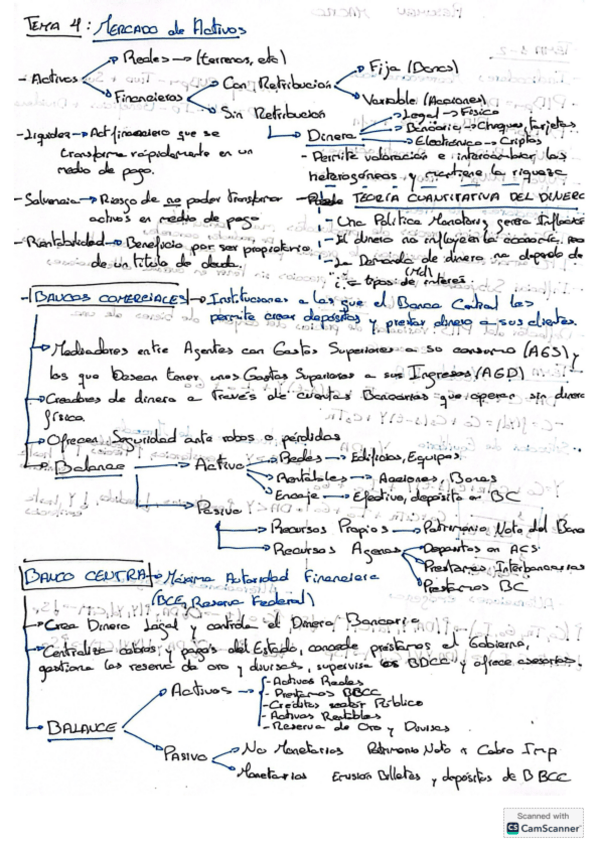 TEMA 4: MERCADO de Activos
- Activos
Reales → (terrenos, etc)
Financieros
Con Retribución
Fija (Bonos)
Variable (Acciones)
Sin Retribución
Dinero
Legal → Físico
Bancario → Cheques, tarjetas
Electrónico → Criptos
- Liquidez → Act financiero que se
transforma rápidamente en un
medio de pago.
- Permite valoración e intercambiar los
heterogéneos y mantiene la riqueza
- Solvencia → Riesgo de no poder transformar
activos en medio de pago
TEORÍA CUANTITATIVA DEL DINERO
- Una Política Monetaria genera Inflación
- El dinero no influye en la economía,
- Demanda de dinero no depende de
(Md)
tipos de interés.
- Rentabilidad → Beneficio por ser propietario
de un título de deuda.
- BANCOS COMERCIALES → Instituciones a las que el Banco Central les
permite crear depósitos y prestar dinero a sus clientes.
Mediadores entre Agentes con Gastos Superiores a su consumo (AGS) y
los que Desean tener unos Gastos Superiores a sus Ingresos (AGD)
Creadores de dinero a través de cuentas Bancarias que operan sin dinero
físico.
Ofrecen Seguridad ante robos o pérdidas
Balance → Activo
Reales → Edificios, Equipos.
Rentables → Acciones, Bonos
Encaje → Efectivo, depósito en BC
Pasivo
Recursos Propios → Patrimonio Neto del Banco
Recursos Ajenos
Depósitos en ACS
Préstamos Interbancarios
Préstamos BC
BANCO CENTRAL → Máxima Autoridad Financiera
(BCE, Reserva Federal)
Crea Dinero Legal y controla el Dinero Bancario
Centraliza cobros y pagos del Estado, concede préstamos al Gobierno,
gestiona las reservas de oro y divisas, supervisa los BBCC y ofrece asesorías.
BALANCE
Activos
- Activos Reales
- Prestamos BBCC
- Créditos sector Público
- Activos Rentables
- Reserva de Oro y Divisas
Pasivo
No Monetarios Patrimonio Neto Cobro Imp
Monetarios Emisión Billetes y depósitos de BBCC
Scanned with
CS CamScanner